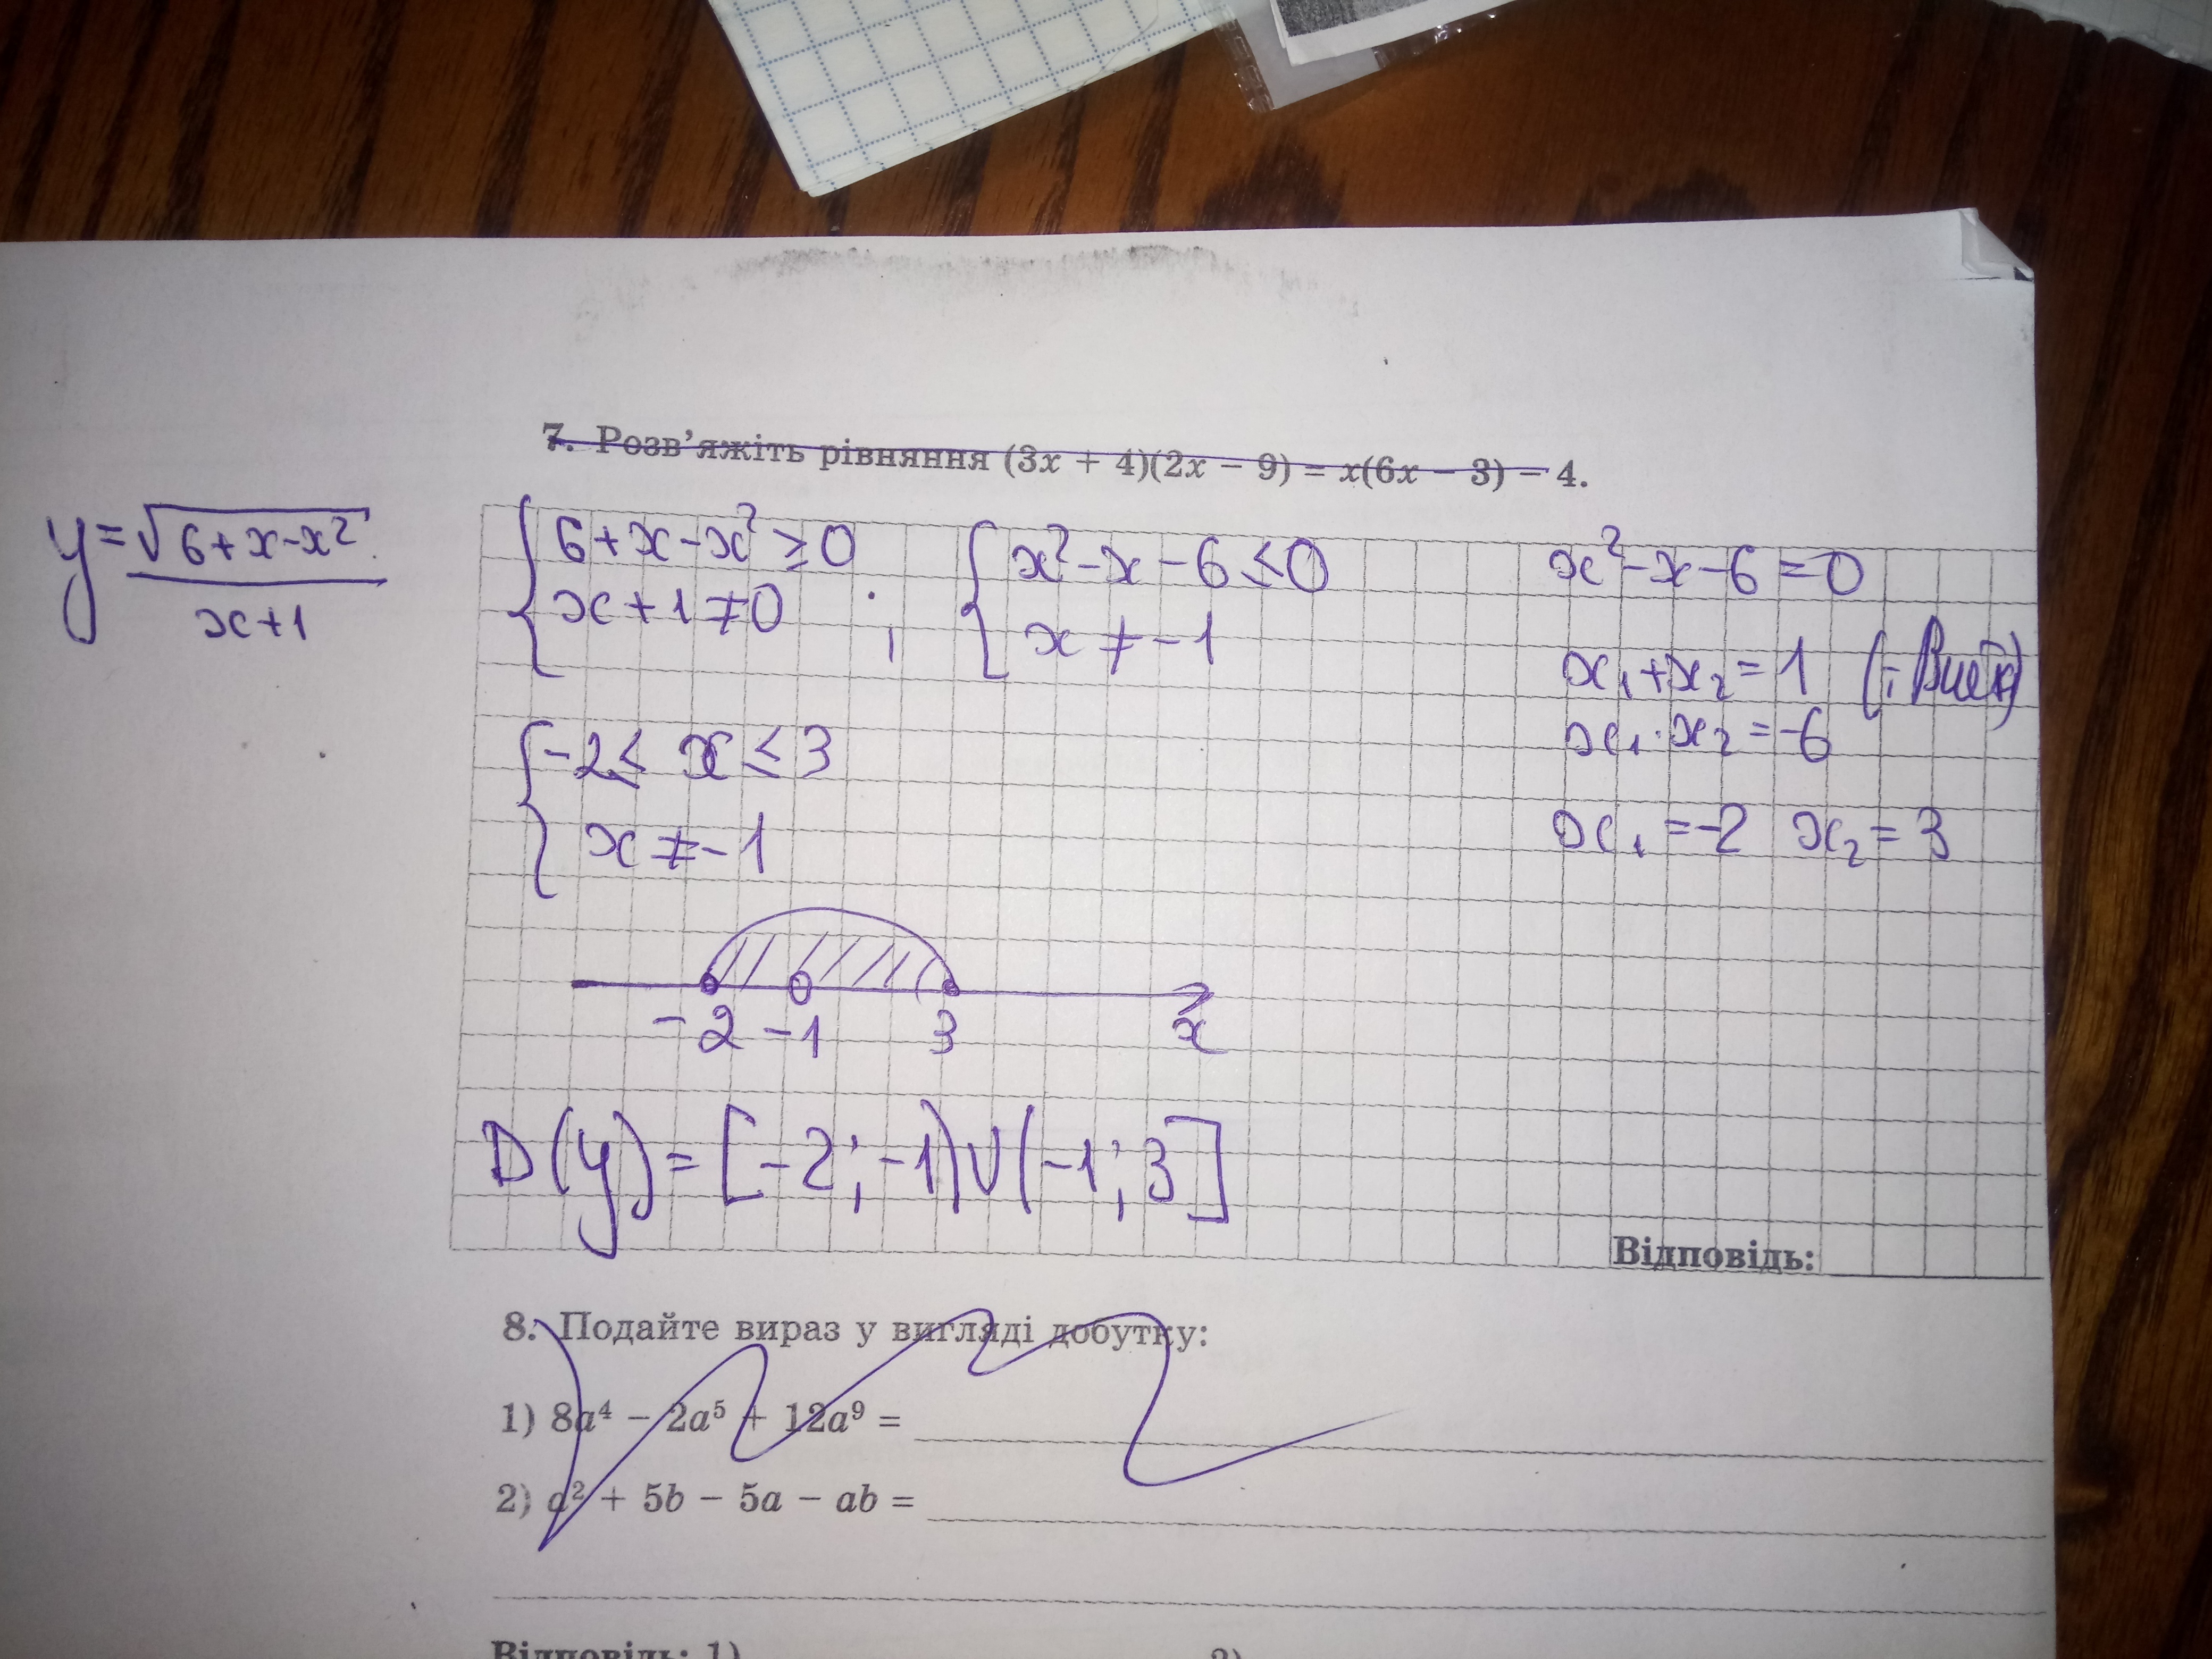 7. Розв'яжіть рівняння (3x + 4)(2x − 9) = x(6x − 3) − 4.
y = √(6+x-x²) / (x+1)
{ 6+x-x² ≥ 0
x+1 ≠ 0 ;
{ x²-x-6 ≤ 0
x ≠ -1
x²-x-6 = 0
x₁+x₂ = 1 (т. Вієта)
x₁·x₂ = -6
x₁ = -2 x₂ = 3
{ -2 ≤ x ≤ 3
x ≠ -1
-2 -1 3 x
D(y) = [-2; -1) U (-1; 3]
Відповідь:
8. Подайте вираз у вигляді добутку:
1) 8a⁴ − 2a⁵ + 12a⁹ =
2) a² + 5b − 5a − ab =
Відповідь: 1) 2)